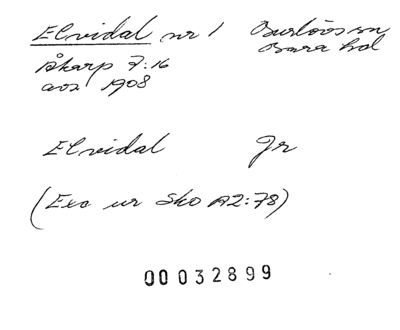 Elvidal nr 1 Burlövs sn
Bara hd
Åkarp 7:16
avs 1908
Elvidal Gr
(Exc ur Sko A2:78)
00032899